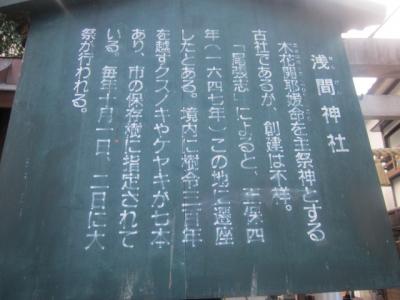 浅間神社
木花開耶媛命を主祭神とする
古社であるが、創建は不祥。
「尾張志」によると、正保四
年（一六四七年）この地に遷座
したとある。境内に樹令三百年
を越すクスノキやケヤキが七本
あり、市の保存樹に指定されて
いる。毎年十月一日、二日に大
祭が行われる。